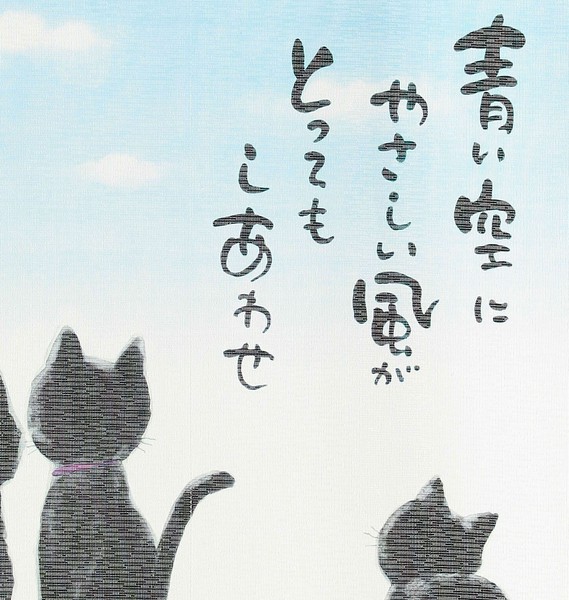 青い空に
やさしい風が
とっても
しあわせ